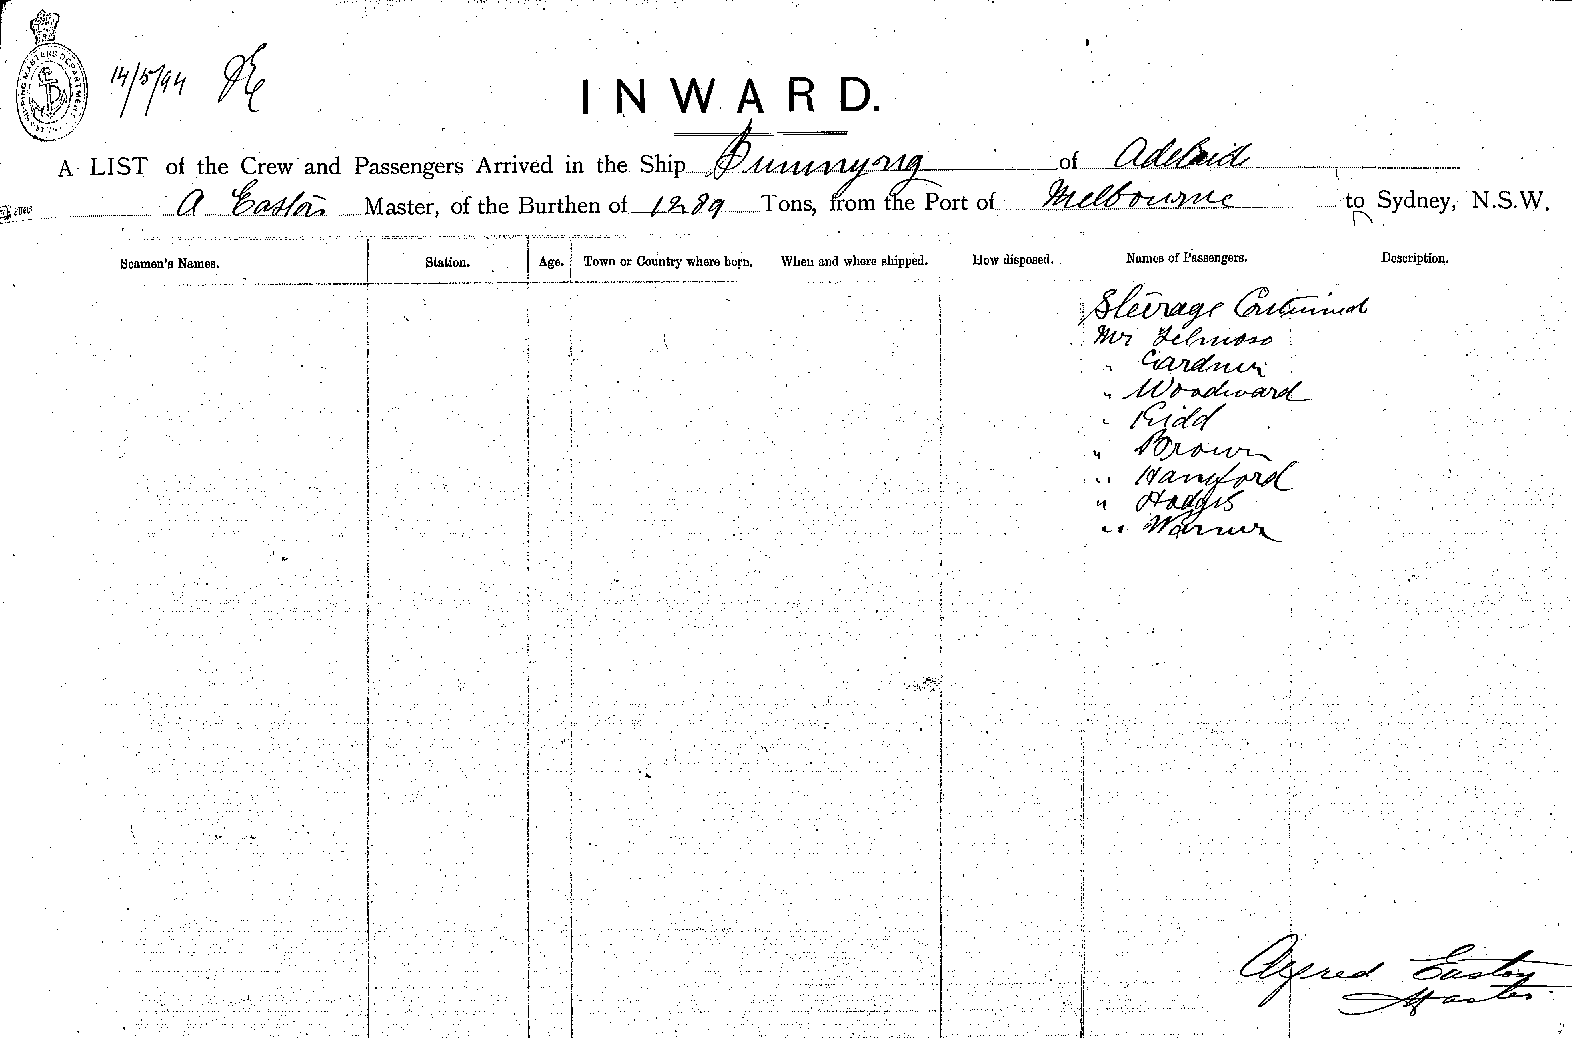 SHIPPING MASTERS DEPARTMENT
14/5/94
INWARD.
A LIST of the Crew and Passengers Arrived in the Ship Buninyong of Adelaide
A Easton Master, of the Burthen of 1289 Tons, from the Port of Melbourne to Sydney, N.S.W.
Seamen's Names. Station. Age. Town or Country where born. When and where shipped. How disposed. Names of Passengers. Description.
Steerage Continued
Mr
" Gardner
" Woodward
" Kidd
" Brown
" Hanford
" Hodges
" Warner
Alfred
Master